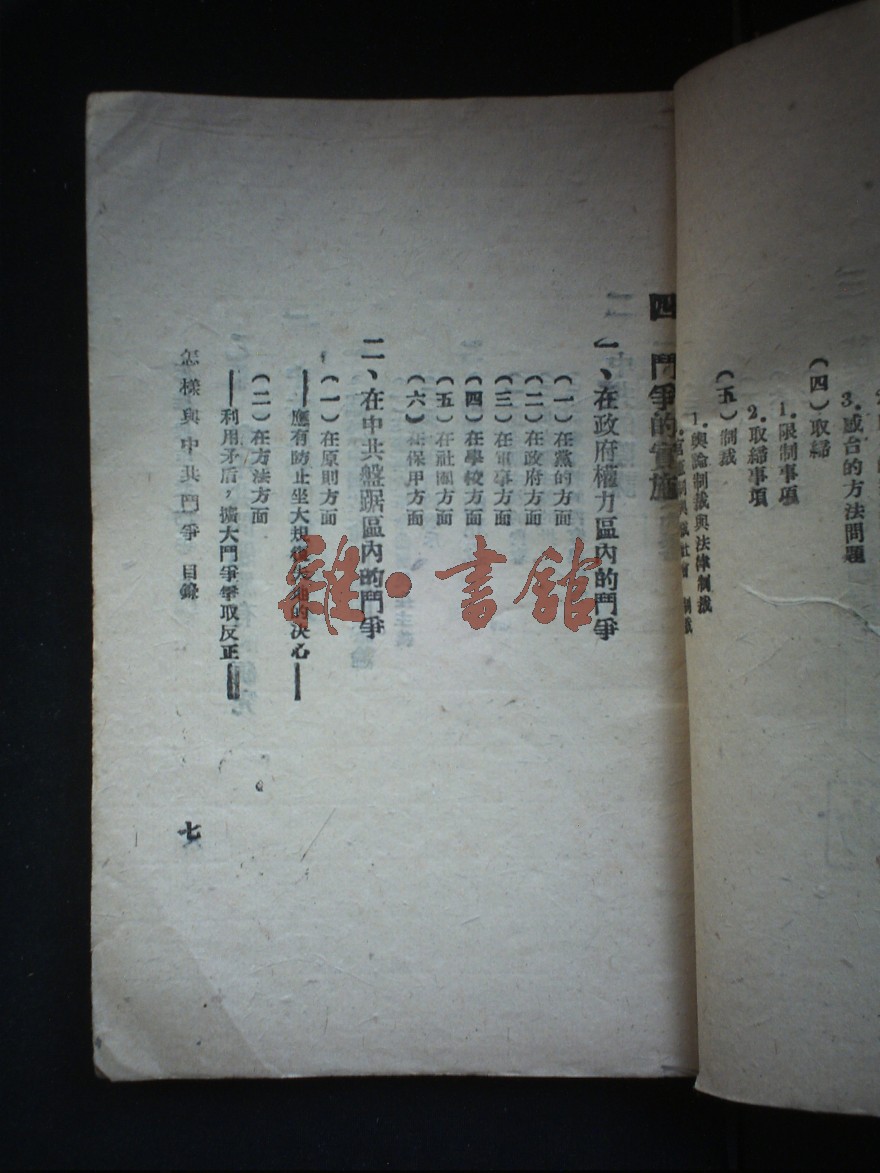 3.感台的方法問題
（四）取締
1.限制事項
2.取締事項
（五）制裁
1.輿論制裁與法律制裁
制裁
四 鬥爭的實施
一、在政府權力區內的鬥爭
（一）在黨的方面
（二）在政府方面
（三）在軍事方面
（四）在學校方面
（五）在社團方面
（六）在保甲方面
二、在中共盤踞區內的鬥爭
（一）在原則方面
——應有防止坐大規復失地的決心——
（二）在方法方面
——利用矛盾，擴大鬥爭爭取反正——
怎樣與中共鬥爭 目錄
七
雜·書館